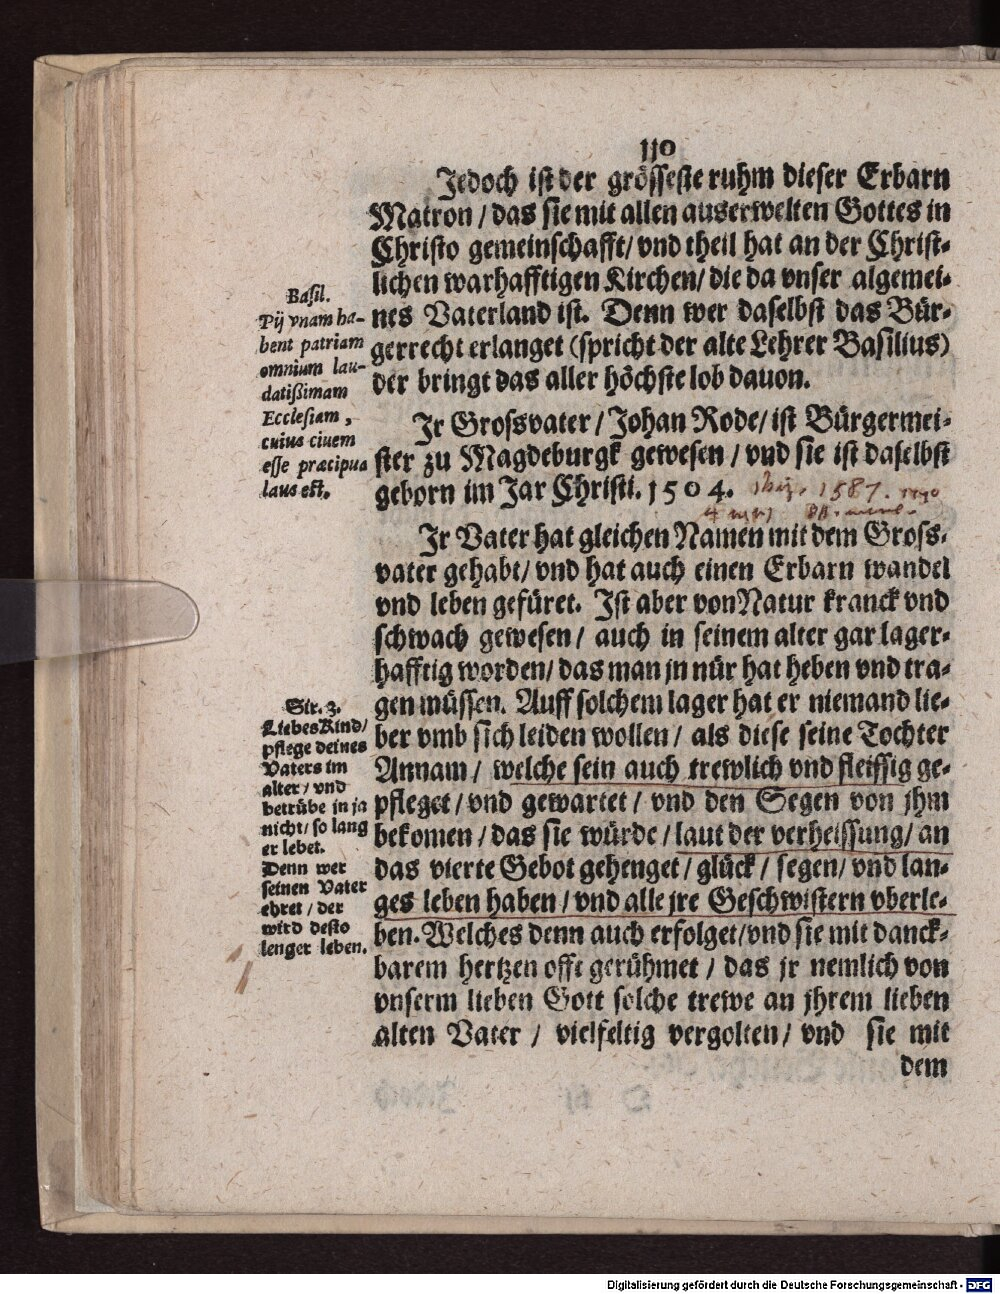 110
Jedoch ist der grösseste ruhm dieser Erbarn
Matron / das sie mit allen auserwelten Gottes in
Christo gemeinschafft / vnd theil hat an der Christ-
lichen warhafftigen Kirchen / die da vnser algemei-
nes Vaterland ist. Denn wer daselbst das Bür-
gerrecht erlanget (spricht der alte Lehrer Basilius)
der bringt das aller höchste lob dauon.
Basil.
Pij vnam ha-
bent patriam
omnium lau-
datißimam
Ecclesiam,
cuius ciuem
esse præcipua
laus est.
Jr Grosvater / Johan Rode / ist Bürgermei-
ster zu Magdeburgk gewesen / vnd sie ist daselbst
geborn im Jar Christi. 1504.
1587.
Jr Vater hat gleichen Namen mit dem Gross-
vater gehabt / vnd hat auch einen Erbarn wandel
vnd leben gefüret. Ist aber von Natur kranck vnd
schwach gewesen / auch in seinem alter gar lager-
hafftig worden / das man jn nür hat heben vnd tra-
gen müssen. Auff solchem lager hat er niemand lie-
ber vmb sich leiden wollen / als diese seine Tochter
Annam / welche sein auch trewlich vnd fleissig ge-
pfleget / vnd gewartet / vnd den Segen von jhm
bekomen / das sie würde / laut der verheissung / an
das vierte Gebot gehenget / glück / segen / vnd lan-
ges leben haben / vnd alle jre Geschwistern vberle-
ben. Welches denn auch erfolget / vnd sie mit danck-
barem hertzen offt gerühmet / das jr nemlich von
vnserm lieben Gott solche trewe an jhrem lieben
alten Vater / vielfeltig vergolten / vnd sie mit
dem
Sir. 3.
Liebes Kind /
pflege deines
Vaters im
alter / vnd
betrübe in ja
nicht / so lang
er lebet.
Denn wer
seinen Vater
ehret / der
wird desto
lenger leben.
Digitalisierung gefördert durch die Deutsche Forschungsgemeinschaft - DFG